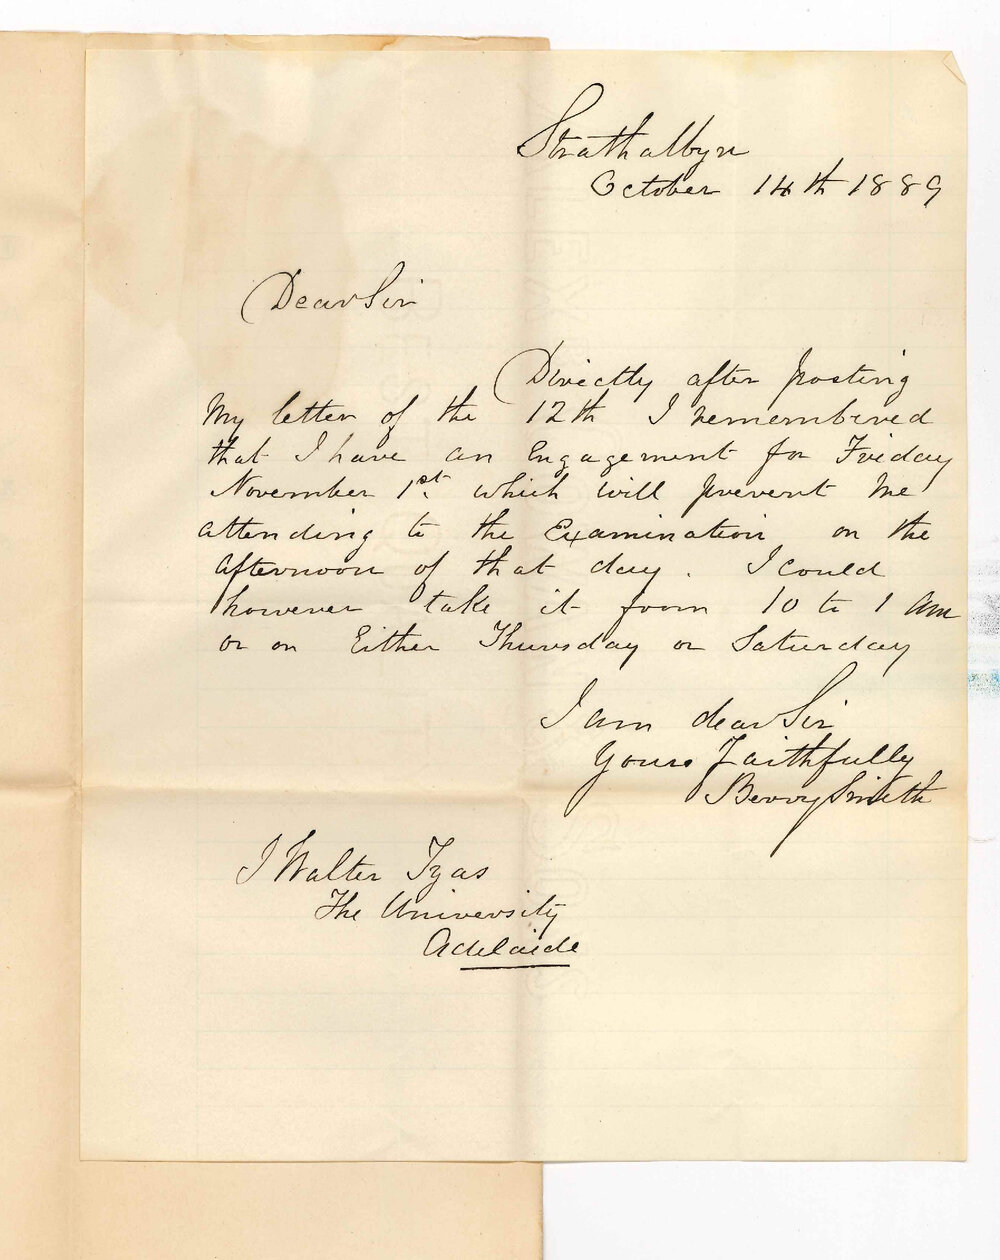 Strathalbyn
October 14th 1889
Dear Sir
Directly after posting
My letter of the 12th I remembered
that I have an Engagement for Friday
November 1st. which will prevent me
attending to the Examination on the
afternoon of that day. I could
however take it from 10 to 1 am
or on Either Thursday or Saturday
I am dear Sir
Yours Faithfully
Berry Smith
J Walter Tyas
The University
Adelaide